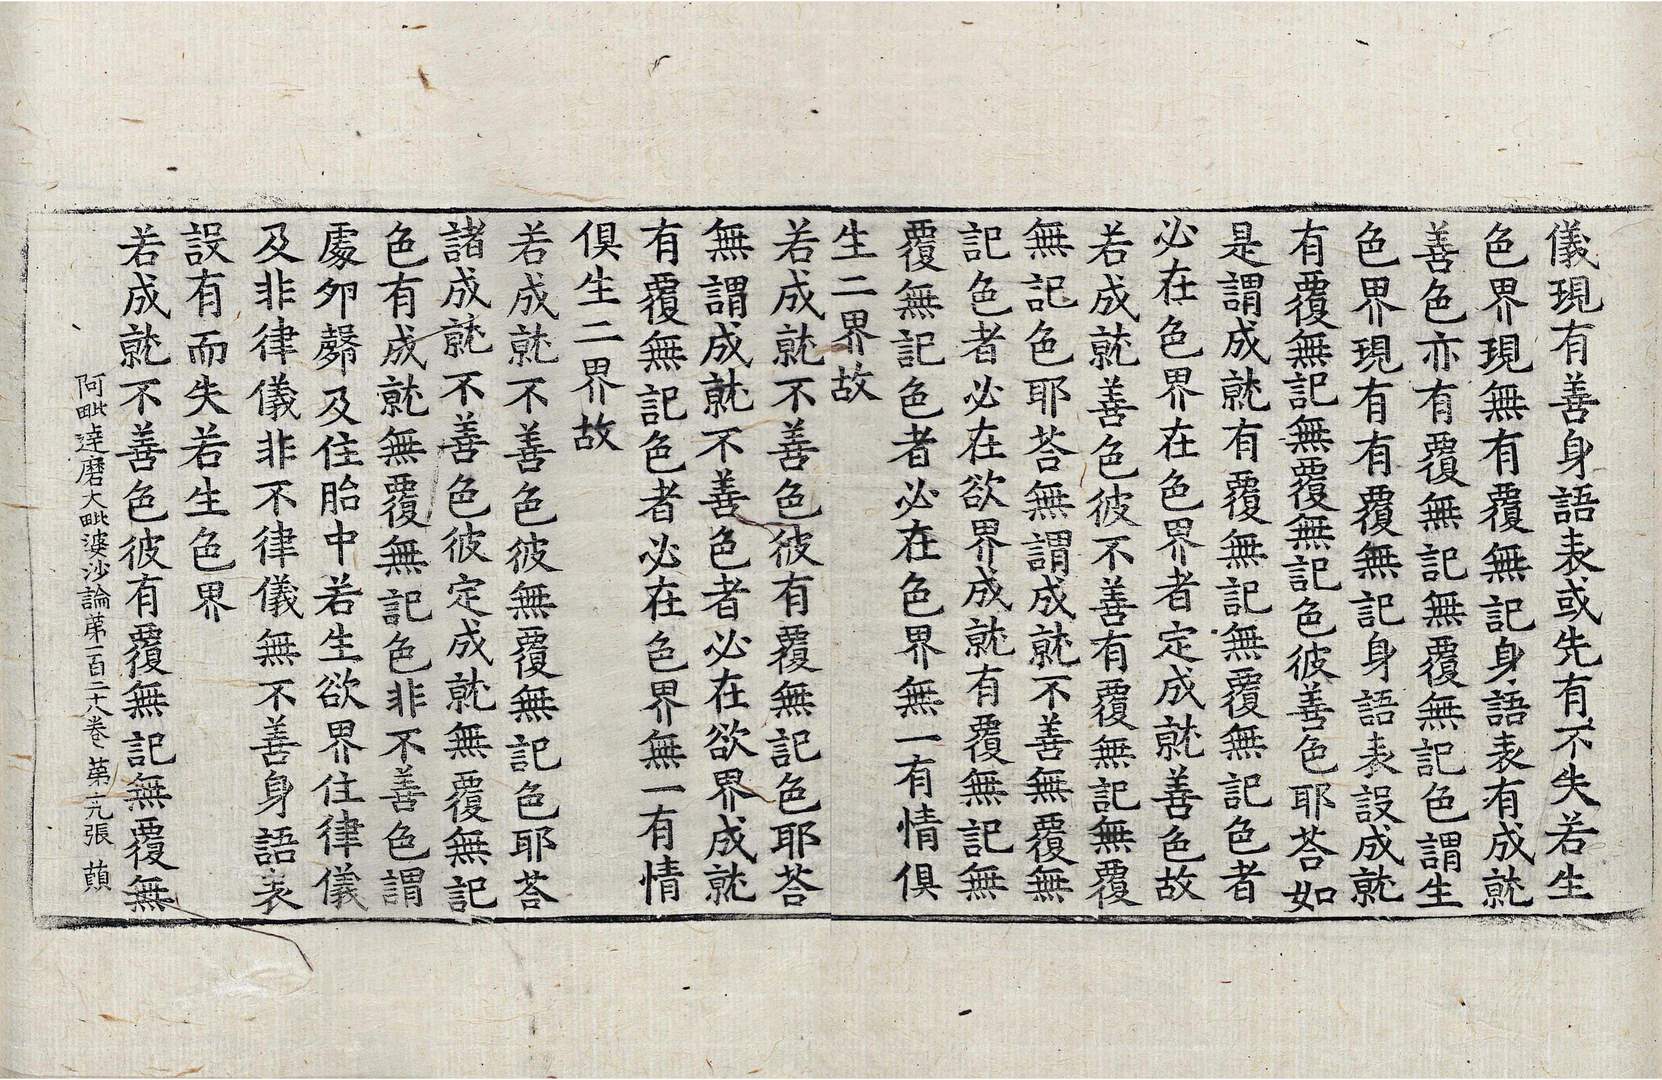 儀現有善身語表或先有不失若生
色界現無有覆無記身語表有成就
善色亦有覆無記無覆無記色謂生
色界現有有覆無記身語表設成就
有覆無記無覆無記色彼善色耶荅如
是謂成就有覆無記無覆無記色者
必在色界在色界者定成就善色故
若成就善色彼不善有覆無記無覆
無記色耶荅無謂成就不善無覆無
記色者必在欲界成就有覆無記無
覆無記色者必在色界無一有情俱
生二界故
若成就不善色彼有覆無記色耶荅
無謂成就不善色者必在欲界成就
有覆無記色者必在色界無一有情
俱生二界故
若成就不善色彼無覆無記色耶荅
諸成就不善色彼定成就無覆無記
色有成就無覆無記色非不善色謂
處夘㲉及住胎中若生欲界住律儀
及非律儀非不律儀無不善身語表
設有而失若生色界
若成就不善色彼有覆無記無覆無
阿毗達磨大毗婆沙論苐一百二十六卷 苐十九張 蘋